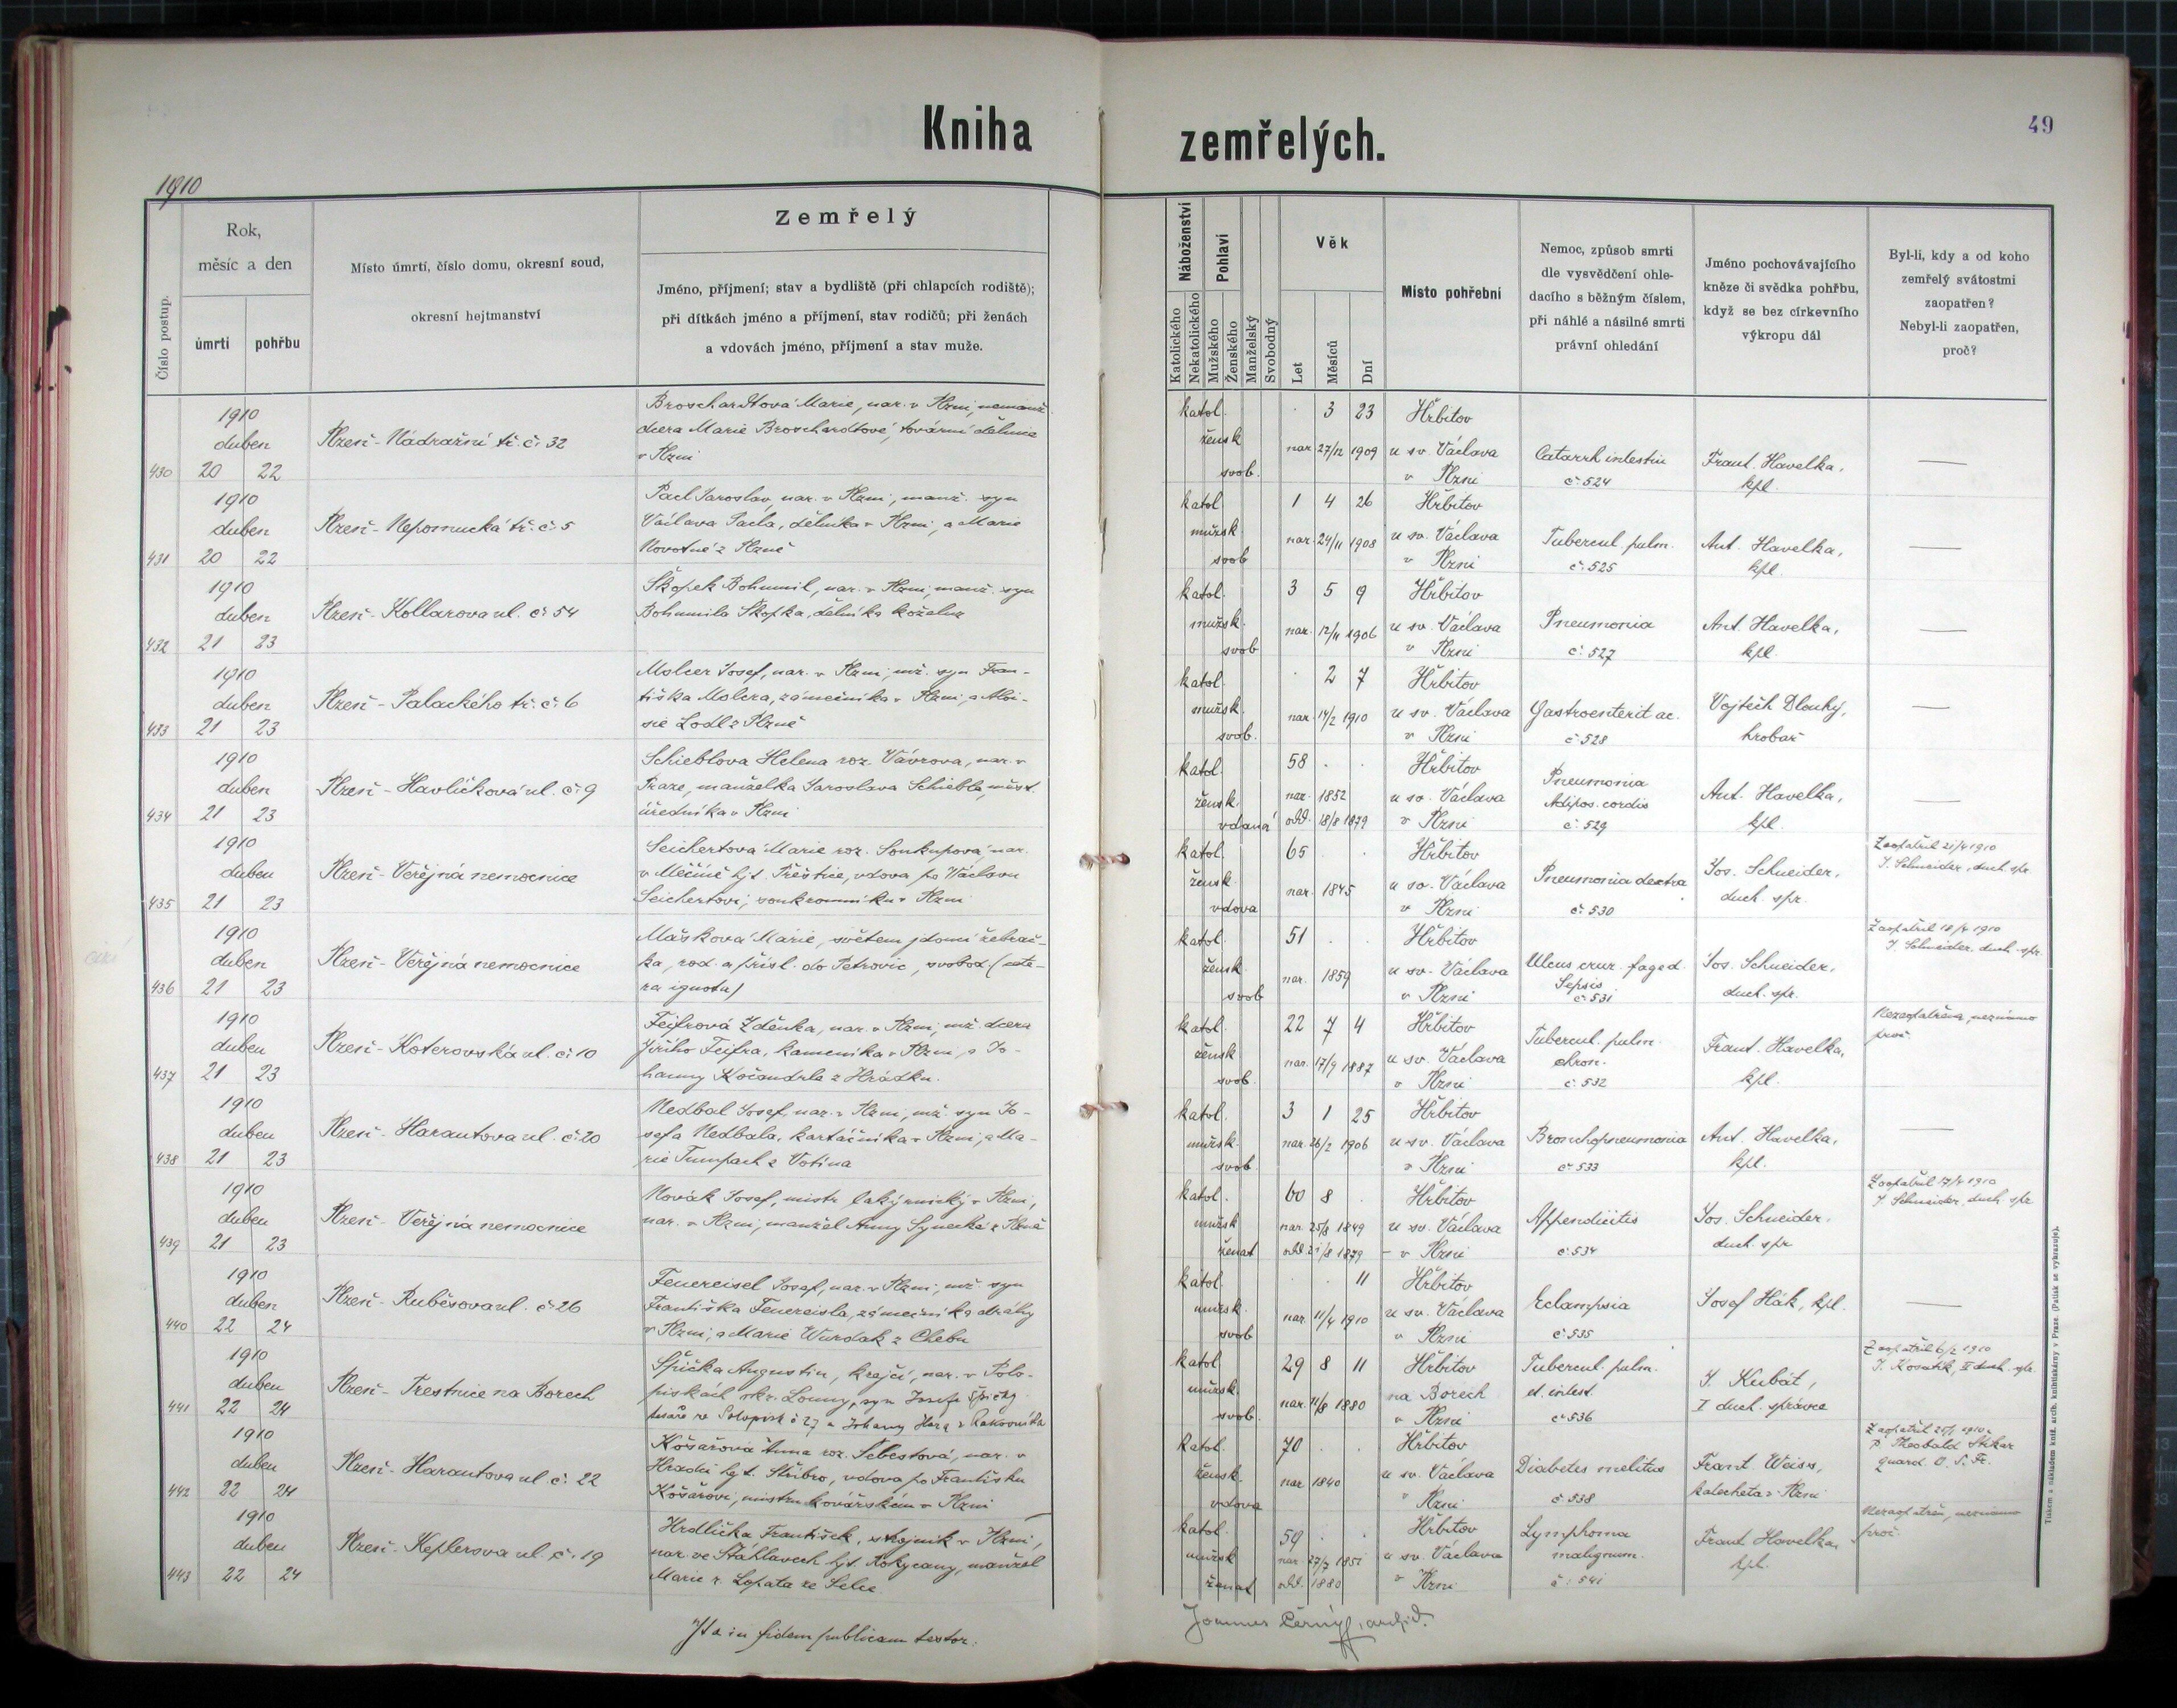 Kniha zemřelých.
49
1910
Číslo postup.
Rok,
měsíc a den
úmrtí
pohřbu
Místo úmrtí, číslo domu, okresní soud,
okresní hejtmanství
Zemřelý
Jméno, příjmení; stav a bydliště (při chlapcích rodiště);
při dítkách jméno a příjmení, stav rodičů; při ženách
a vdovách jméno, příjmení a stav muže.
Náboženství
Katolického
Nekatolického
Pohlaví
Mužského
Ženského
Manželský
Svobodný
Věk
Let
Měsíců
Dní
Místo pohřební
Nemoc, způsob smrti
dle vysvědčení ohle-
dacího s běžným číslem,
při náhlé a násilné smrti
právní ohledání
Jméno pochovávajícího
kněze či svědka pohřbu,
když se bez církevního
výkropu dál
Byl-li, kdy a od koho
zemřelý svátostmi
zaopatřen?
Nebyl-li zaopatřen,
proč?
430
1910
duben
20 22
Plzeň - Nádražní tř. č. 32
Broschardtová Marie, nar. v Plzni, nemanž.
dcera Marie Broschardtové, tovární dělnice
v Plzni
katol.
žensk
svob.
3 23
nar. 27/12 1909
Hřbitov
u sv. Václava
v Plzni
Catarrh intestin
č. 524
Frant. Havelka,
kpl.
431
1910
duben
20 22
Plzeň - Nepomucká tř. č. 5
Pacl Jaroslav, nar. v Plzni, manž. syn
Václava Pacla, dělníka v Plzni, a Marie
Novotné z Plzně
katol
mužsk.
svob
1 4 26
nar. 24/11 1908
Hřbitov
u sv. Václava
v Plzni
Tubercul. pulm.
č. 525
Ant. Havelka,
kpl.
432
1910
duben
21 23
Plzeň - Kollarova ul. č. 54
Škopek Bohumil, nar. v Plzni, manž. syn
Bohumila Škopka, dělníka koželuz
katol.
mužsk.
svob
3 5 9
nar. 12/11 1906
Hřbitov
u sv. Václava
v Plzni
Pneumonia
č. 527
Ant. Havelka,
kpl.
433
1910
duben
21 23
Plzeň - Palackého tř. č. 6
Molcer Josef, nar. v Plzni, mž. syn Fran-
tiška Molcra, zámečníka v Plzni, a Aloi-
sie Lodl z Plzně
katol.
mužsk.
svob.
2 7
nar. 14/2 1910
Hřbitov
u sv. Václava
v Plzni
Gastroenterit ac.
č. 528
Vojtěch Dlouhý,
hrobař
434
1910
duben
21 23
Plzeň - Havlíčková ul. č. 9
Schieblova Helena roz. Vávrova, nar. v
Praze, manželka Jaroslava Schiebla, měst.
úředníka v Plzni
katol.
žensk.
vdaná
58
nar. 1852
odd. 18/8 1879
Hřbitov
u sv. Václava
v Plzni
Pneumonia
Adipos. cordis
č. 529
Ant. Havelka,
kpl.
435
1910
duben
21 23
Plzeň - Veřejná nemocnice
Seichertová Marie roz. Soukupová, nar.
v Měčíně hjt. Přeštice, vdova po Václavu
Seichertovi, soukromníku v Plzni
katol.
žensk.
vdova
65
nar. 1845
Hřbitov
u sv. Václava
v Plzni
Pneumonia dextra
č. 530
Jos. Schneider,
duch. spr.
Zaopatřil 21/4 1910
J. Schneider, duch. spr.
436
1910
duben
21 23
Plzeň - Veřejná nemocnice
Mašková Marie, světem jdoucí žebrač-
ka, rod. a přísl. do Petrovic, svobod. (cete-
ra ignota)
katol.
žensk.
svob
51
nar. 1859
Hřbitov
u sv. Václava
v Plzni
Ulcus crur. faged.
Sepsis
č. 531
Jos. Schneider,
duch. spr.
Zaopatřil 18/4 1910
J. Schneider duch. spr.
437
1910
duben
21 23
Plzeň - Koterovská ul. č. 10
Feifrová Zděnka, nar. v Plzni, mž. dcera
Jiřího Feifra, kameníka v Plzni, a Jo-
hanny Kočandrla z Hrádku.
katol.
žensk
svob.
22 7 4
nar. 17/9 1887
Hřbitov
u sv. Václava
v Plzni
Tubercul. pulm.
chron.
č. 532
Frant. Havelka,
kpl.
Nezaopatřena, neznámo
proč.
438
1910
duben
21 23
Plzeň - Harantova ul. č. 20
Nedbal Josef, nar. v Plzni, mž. syn Jo-
sefa Nedbala, kartáčníka v Plzni, a Ma-
rie Tumpach z Votína
katol.
mužsk.
svob.
3 1 25
nar. 26/2 1906
Hřbitov
u sv. Václava
v Plzni
Bronchopneumonia
č. 533
Ant. Havelka,
kpl.
439
1910
duben
21 23
Plzeň - Veřejná nemocnice
Novák Josef, mistr lakýrnický v Plzni,
nar. v Plzni, manžel Anny Synecké z Plzně
katol.
mužsk
ženat
60 8
nar. 25/8 1849
odd. 21/8 1879
Hřbitov
u sv. Václava
v Plzni
Appendicitis
č. 534
Jos. Schneider,
duch. spr
Zaopatřil 17/4 1910
J. Schneider, duch. spr
440
1910
duben
22 24
Plzeň - Rubešova ul. č. 26
Feuereisel Josef, nar. v Plzni, mž. syn
Františka Feuereisla, zámečníka dráhy
v Plzni, a Marie Wurdak z Chebu
katol.
mužsk.
svob
11
nar. 11/4 1910
Hřbitov
u sv. Václava
v Plzni
Eclampsia
č. 535
Josef Hák, kpl.
441
1910
duben
22 24
Plzeň - Trestnice na Borech
Špička Augustin, krejčí, nar. v Solo-
piskách okr. Louny, syn Josefa Špičky
tesaře ve Solopisk č 27 a Johanny Hora z Rakovníka
katol.
mužsk.
svob.
29 8 11
nar. 11/8 1880
Hřbitov
na Borech
v Plzni
Tubercul. pulm.
et. intest.
č. 536
J. Kubát,
I duch. správce
Zaopatřil 6/2 1910
J. Kosatík, II duch. spr.
442
1910
duben
22 24
Plzeň - Harantova ul č. 22
Košařova Anna roz. Šebestová, nar. v
Hradci hjt. Stříbro, vdova po Františku
Košařovi, mistru kovářském v Plzni
katol.
žensk.
vdova
70
nar. 1840
Hřbitov
u sv. Václava
v Plzni
Diabetes melitus
č. 538
Frant Weiss,
katecheta v Plzni
P. Theobald
quard. O. S. Fr.
443
1910
duben
22 24
Plzeň - Keplerova ul. č. 19
Hrdlička František, strojník v Plzni,
nar. ve Šťáhlavech hjt. Rokycany, manžel
Marie r. Lopata ze Selce
katol.
mužsk
ženat
59
nar. 27/7 1851
odd. 1880
Hřbitov
u sv. Václava
v Plzni
Lymphoma
malignum.
č. 541
Frant Havelka,
kpl.
Nezaopatřen, neznámo
proč.
Ita in fidem publicam testor:
Joannes Černý, archid.
Tiskem a nákladem kníž. arcib. knihtiskárny v Praze. (Patisk se vykrazuje).